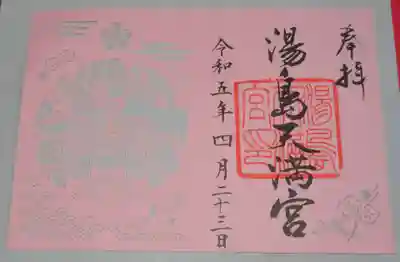 奉拝
湯島天満宮
令和五年四月二十三日